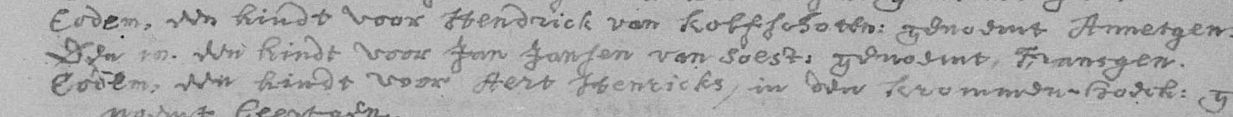 Eodem, een kindt voor Hendrick van Kolfschoten: genoemt Annetgen.
Den 10. een kindt voor Jan Jansen van Soest: genoemt, Fransgen.
Eodem, een kindt voor Aert Henricks, in den krommen-Hoeck: g
noemt